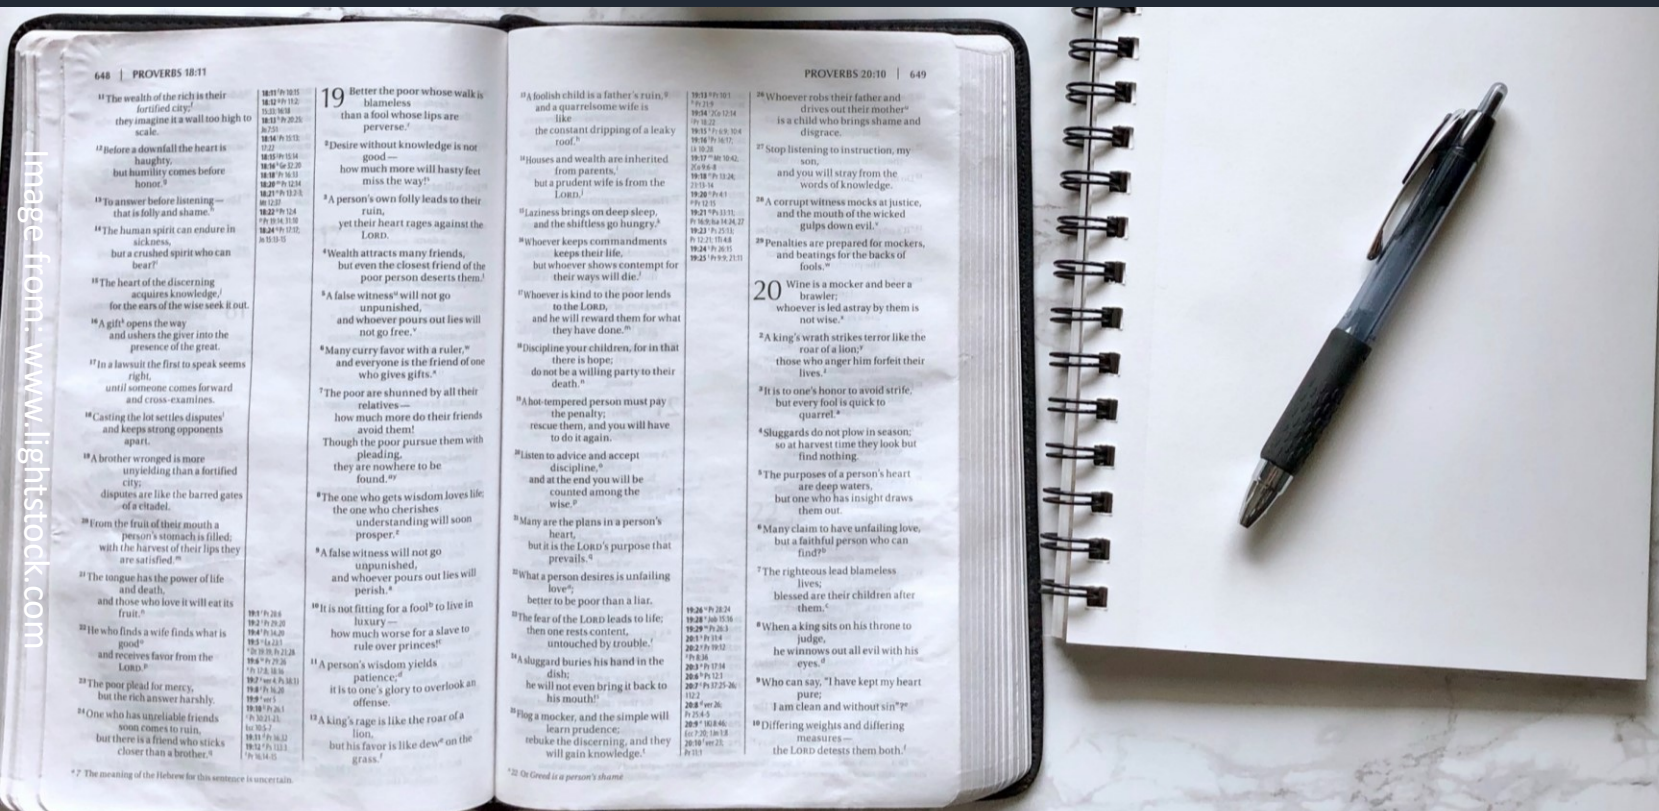 Image from: www.lightstock.com
648 | PROVERBS 18:11
¹¹The wealth of the rich is their
fortified city;
they imagine it a wall too high to
scale.
¹²Before a downfall the heart is
haughty,
but humility comes before
honor.
¹³To answer before listening—
that is folly and shame.
¹⁴The human spirit can endure in
sickness,
but a crushed spirit who can
bear?
¹⁵The heart of the discerning
acquires knowledge,
for the ears of the wise seek it out.
¹⁶A gift opens the way
and ushers the giver into the
presence of the great.
¹⁷In a lawsuit the first to speak seems
right,
until someone comes forward
and cross-examines.
¹⁸Casting the lot settles disputes
and keeps strong opponents
apart.
¹⁹A brother wronged is more
unyielding than a fortified
city;
disputes are like the barred gates
of a citadel.
²⁰From the fruit of their mouth a
person's stomach is filled;
with the harvest of their lips they
are satisfied.
²¹The tongue has the power of life
and death,
and those who love it will eat its
fruit.
²²He who finds a wife finds what is
good
and receives favor from the
LORD.
²³The poor plead for mercy,
but the rich answer harshly.
²⁴One who has unreliable friends
soon comes to ruin,
but there is a friend who sticks
closer than a brother.
19 Better the poor whose walk is
blameless
than a fool whose lips are
perverse.
²Desire without knowledge is not
good—
how much more will hasty feet
miss the way!
³A person's own folly leads to their
ruin,
yet their heart rages against the
LORD.
⁴Wealth attracts many friends,
but even the closest friend of the
poor person deserts them.
⁵A false witness will not go
unpunished,
and whoever pours out lies will
not go free.
⁶Many curry favor with a ruler,
and everyone is the friend of one
who gives gifts.
⁷The poor are shunned by all their
relatives—
how much more do their friends
avoid them!
Though the poor pursue them with
pleading,
they are nowhere to be
found.
⁸The one who gets wisdom loves life;
the one who cherishes
understanding will soon
prosper.
⁹A false witness will not go
unpunished,
and whoever pours out lies will
perish.
¹⁰It is not fitting for a fool to live in
luxury—
how much worse for a slave to
rule over princes!
¹¹A person's wisdom yields
patience;
it is to one's glory to overlook an
offense.
¹²A king's rage is like the roar of a
lion,
but his favor is like dew on the
grass.
7 The meaning of the Hebrew for this sentence is uncertain.
PROVERBS 20:10 | 649
¹³A foolish child is a father's ruin,
and a quarrelsome wife is
like
the constant dripping of a leaky
roof.
¹⁴Houses and wealth are inherited
from parents,
but a prudent wife is from the
LORD.
¹⁵Laziness brings on deep sleep,
and the shiftless go hungry.
¹⁶Whoever keeps commandments
keeps their life,
but whoever shows contempt for
their ways will die.
¹⁷Whoever is kind to the poor lends
to the LORD,
and he will reward them for what
they have done.
¹⁸Discipline your children, for in that
there is hope;
do not be a willing party to their
death.
¹⁹A hot-tempered person must pay
the penalty;
rescue them, and you will have
to do it again.
²⁰Listen to advice and accept
discipline,
and at the end you will be
counted among the
wise.
²¹Many are the plans in a person's
heart,
but it is the LORD's purpose that
prevails.
²²What a person desires is unfailing
love;
better to be poor than a liar.
²³The fear of the LORD leads to life;
then one rests content,
untouched by trouble.
²⁴A sluggard buries his hand in the
dish;
he will not even bring it back to
his mouth!
²⁵Flog a mocker, and the simple will
learn prudence;
rebuke the discerning, and they
will gain knowledge.
²⁶Whoever robs their father and
drives out their mother
is a child who brings shame and
disgrace.
²⁷Stop listening to instruction, my
son,
and you will stray from the
words of knowledge.
²⁸A corrupt witness mocks at justice,
and the mouth of the wicked
gulps down evil.
²⁹Penalties are prepared for mockers,
and beatings for the backs of
fools.
20 Wine is a mocker and beer a
brawler;
whoever is led astray by them is
not wise.
²A king's wrath strikes terror like the
roar of a lion;
those who anger him forfeit their
lives.
³It is to one's honor to avoid strife,
but every fool is quick to
quarrel.
⁴Sluggards do not plow in season;
so at harvest time they look but
find nothing.
⁵The purposes of a person's heart
are deep waters,
but one who has insight draws
them out.
⁶Many claim to have unfailing love,
but a faithful person who can
find?
⁷The righteous lead blameless
lives;
blessed are their children after
them.
⁸When a king sits on his throne to
judge,
he winnows out all evil with his
eyes.
⁹Who can say, "I have kept my heart
pure;
I am clean and without sin"?
¹⁰Differing weights and differing
measures—
the LORD detests them both.
22 Or Greed is a person's shame